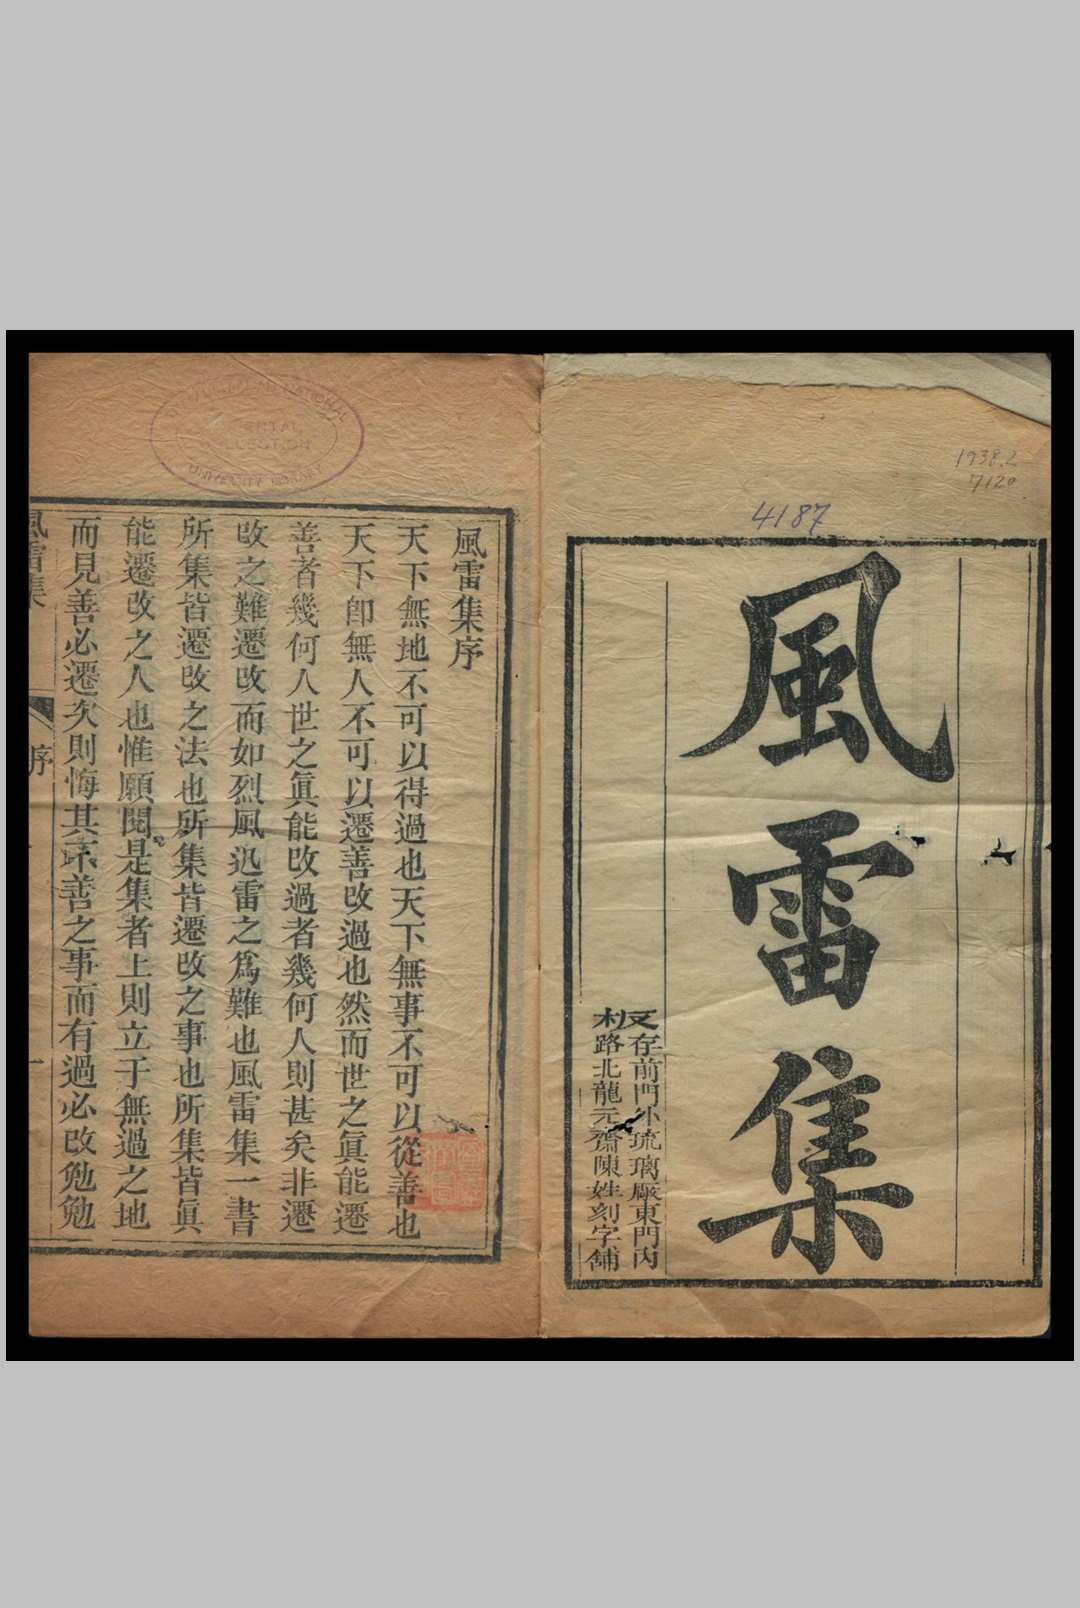 1938.2
7120
4187
風雷集
板存前門外琉璃厰東門內
路北龍元齋陳姓刻字舖
風雷集序
天下無地不可以得過也天下無事不可以從善也
天下卽無人不可以遷善改過也然而世之眞能遷
善者幾何人世之眞能改過者幾何人則甚矣非遷
改之難遷改而如烈風迅雷之爲難也風雷集一書
所集皆遷改之法也所集皆遷改之事也所集皆眞
能遷改之人也惟願閱是集者上則立于無過之地
而見善必遷次則悔其不善之事而有過必改勉勉
風雷集
序
一